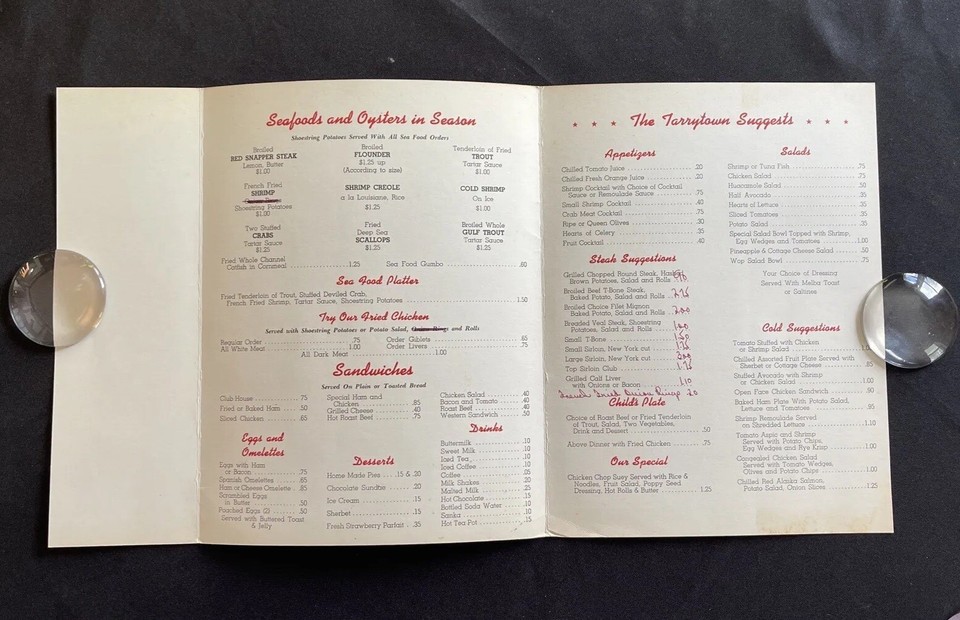 Seafoods and Oysters in Season
Shoestring Potatoes Served With All Sea Food Orders
Broiled
RED SNAPPER STEAK
Lemon, Butter
$1.00
Broiled
FLOUNDER
$1.25 up
(According to size)
Tenderloin of Fried
TROUT
Tartar Sauce
$1.00
French Fried
SHRIMP
Shoestring Potatoes
$1.00
SHRIMP CREOLE
a la Louisiane, Rice
$1.25
COLD SHRIMP
On Ice
$1.00
Two Stuffed
CRABS
Tartar Sauce
$1.25
Fried
Deep Sea
SCALLOPS
$1.25
Broiled Whole
GULF TROUT
Tartar Sauce
$1.25
Fried Whole Channel
Catfish in Cornmeal 1.25
Sea Food Gumbo .60
Sea Food Platter
Fried Tenderloin of Trout, Stuffed Deviled Crab,
French Fried Shrimp, Tartar Sauce, Shoestring Potatoes 1.50
Try Our Fried Chicken
Served with Shoestring Potatoes or Potato Salad, Onion Rings and Rolls
Regular Order .75
All White Meat 1.00
Order Giblets .65
Order Livers .75
All Dark Meat 1.00
Sandwiches
Served On Plain or Toasted Bread
Club House .75
Fried or Baked Ham .50
Sliced Chicken .65
Special Ham and
Chicken .85
Grilled Cheese .40
Hot Roast Beef .75
Chicken Salad .40
Bacon and Tomato .40
Roast Beef .40
Western Sandwich .50
Eggs and
Omelettes
Eggs with Ham
or Bacon .75
Spanish Omelettes .85
Ham or Cheese Omelette .85
Scrambled Eggs
in Butter .50
Poached Eggs (2) .50
Served with Buttered Toast
& Jelly
Desserts
Home Made Pies .15 & .20
Chocolate Sundae .20
Ice Cream .15
Sherbet .15
Fresh Strawberry Parfait .35
Drinks
Buttermilk .10
Sweet Milk .10
Iced Tea .10
Iced Coffee .10
Coffee .05
Milk Shakes .20
Malted Milk .25
Hot Chocolate .15
Bottled Soda Water .10
Sanka .10
Hot Tea Pot .15
* * * The Tarrytown Suggests * * *
Appetizers
Chilled Tomato Juice .20
Chilled Fresh Orange Juice .20
Shrimp Cocktail with Choice of Cocktail
Sauce or Remoulade Sauce .75
Small Shrimp Cocktail .40
Crab Meat Cocktail .75
Ripe or Queen Olives .30
Hearts of Celery .35
Fruit Cocktail .40
Steak Suggestions
Grilled Chopped Round Steak, Hashed
Brown Potatoes, Salad and Rolls
Broiled Beef T-Bone Steak,
Baked Potato, Salad and Rolls 2.75
Broiled Choice Filet Mignon
Baked Potato, Salad and Rolls 2.00
Breaded Veal Steak, Shoestring
Potatoes, Salad and Rolls
Small T-Bone
Small Sirloin, New York cut 1.75
Large Sirloin, New York cut
Top Sirloin Club 1.75
Grilled Calf Liver
with Onions or Bacon 1.10
French Fried Onion Rings 20
Child's Plate
Choice of Roast Beef or Fried Tenderloin
of Trout, Salad, Two Vegetables,
Drink and Dessert .50
Above Dinner with Fried Chicken .75
Our Special
Chicken Chop Suey Served with Rice &
Noodles, Fruit Salad, Poppy Seed
Dressing, Hot Rolls & Butter 1.25
Salads
Shrimp or Tuna Fish .75
Chicken Salad .75
Huacamole Salad .50
Half Avocado .35
Hearts of Lettuce .35
Sliced Tomatoes .35
Potato Salad .35
Special Salad Bowl Topped with Shrimp,
Egg Wedges and Tomatoes 1.00
Pineapple & Cottage Cheese Salad .50
Wop Salad .75
Your Choice of Dressing
Served With Melba Toast
or Saltines
Cold Suggestions
Tomato Stuffed with Chicken
or Shrimp Salad
Chilled Assorted Fruit Plate Served with
Sherbet or Cottage Cheese .85
Stuffed Avocado with Shrimp
or Chicken Salad 1.00
Open Face Chicken Sandwich .90
Baked Ham Plate With Potato Salad,
Lettuce and Tomatoes .95
Shrimp Remoulade Served
on Shredded Lettuce 1.10
Tomato Aspic and Shrimp
Served with Potato Chips,
Egg Wedges and Rye Krisp 1.00
Congealed Chicken Salad
Served with Tomato Wedges,
Olives and Potato Chips 1.00
Chilled Red Alaska Salmon,
Potato Salad, Onion Slices 1.25